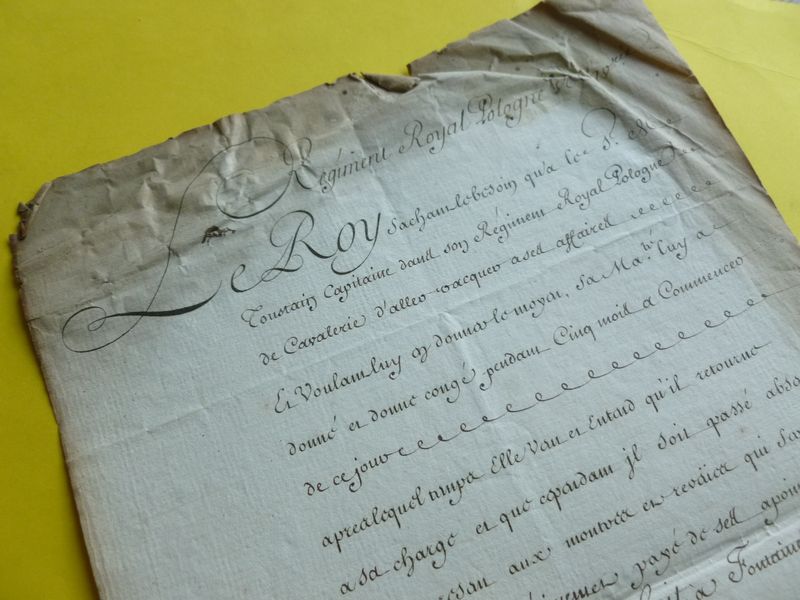 Régiment Royal Pologne
Le Roy Sachant le besoin qu'a le Sr. de
Toustain Capitaine dans son Régiment Royal Pologne
de Cavalerie d'aller vacquer a ses affaires
Et Voulant luy en donner le moyen, Sa Maté. luy a
donné et donne congé pendant Cinq mois a Commencer
de ce jour
apres lequel temps Elle Veut et Entend qu'il retourne
a sa charge et que cependant il soit passé absent
aux montres et reveües qui
payé de ses
a Fontaine